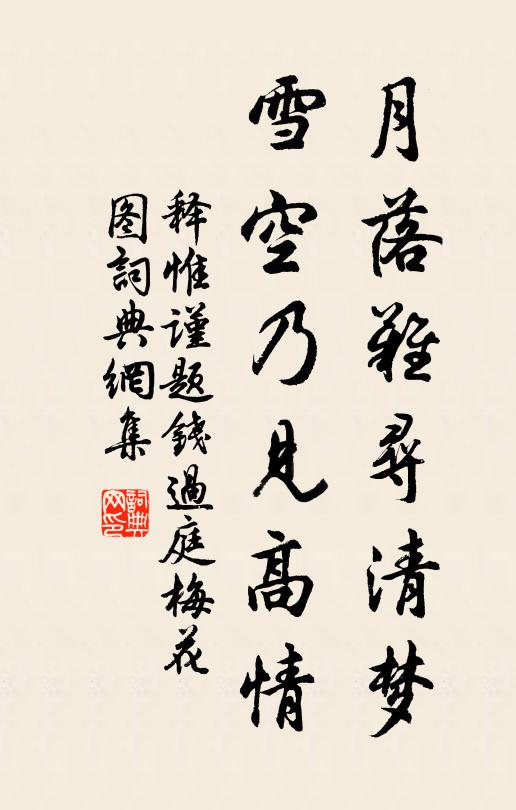 月落难尋清梦
雪空乃見高情
释惟谨题錢過庭梅花
图詞典網集
詞典网印